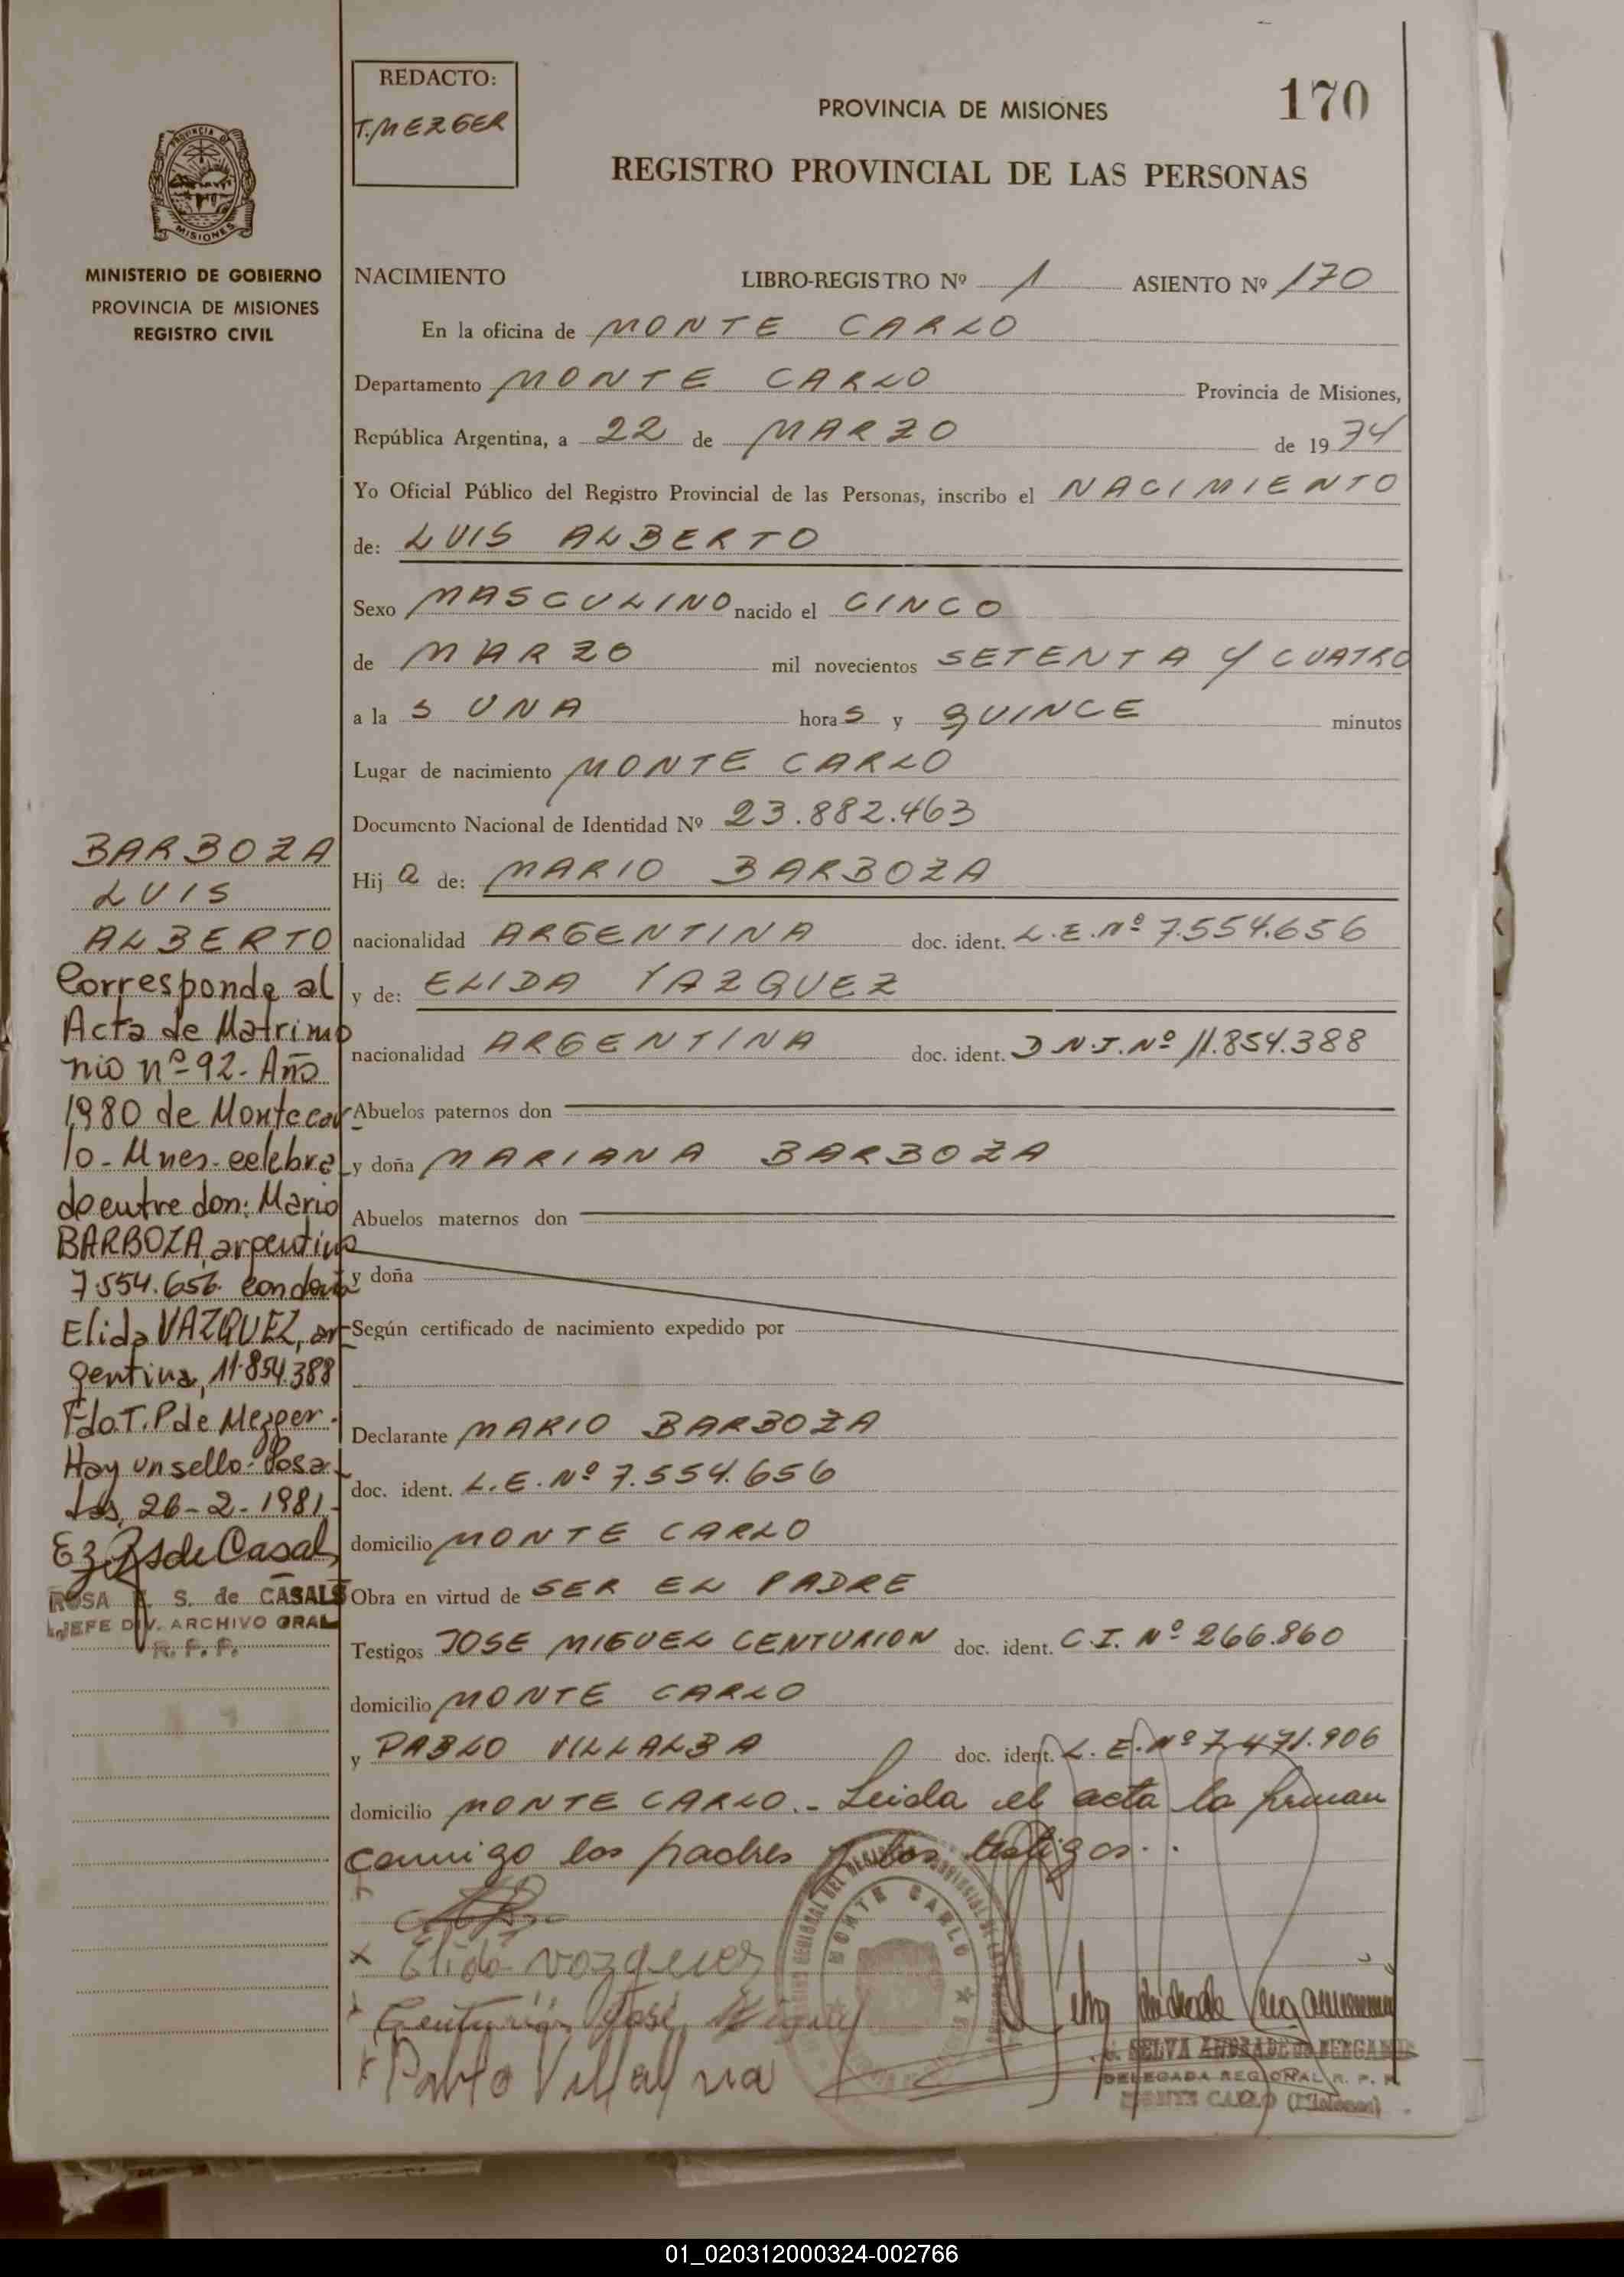 REDACTO:
T. MEZGER
170
PROVINCIA DE MISIONES
REGISTRO PROVINCIAL DE LAS PERSONAS
PROVINCIA DE
MISIONES
MINISTERIO DE GOBIERNO
PROVINCIA DE MISIONES
REGISTRO CIVIL
NACIMIENTO LIBRO-REGISTRO Nº 1 ASIENTO Nº 170
En la oficina de MONTE CARLO
Departamento MONTE CARLO Provincia de Misiones,
República Argentina, a 22 de MARZO de 1974
Yo Oficial Público del Registro Provincial de las Personas, inscribo el NACIMIENTO
de: LUIS ALBERTO
Sexo MASCULINO nacido el CINCO
de MARZO mil novecientos SETENTA Y CUATRO
a las UNA horas y QUINCE minutos
Lugar de nacimiento MONTE CARLO
Documento Nacional de Identidad Nº 23.882.463
Hij o de: MARIO BARBOZA
nacionalidad ARGENTINA doc. ident. L.E. Nº 7.554.656
y de: ELIDA VAZQUEZ
nacionalidad ARGENTINA doc. ident. D.N.I. Nº 11.854.388
Abuelos paternos don
y doña MARIANA BARBOZA
Abuelos maternos don
y doña
Según certificado de nacimiento expedido por
Declarante MARIO BARBOZA
doc. ident. L.E. Nº 7.554.656
domicilio MONTE CARLO
Obra en virtud de SER EL PADRE
Testigos JOSE MIGUEL CENTURION doc. ident. C.I. Nº 266.860
domicilio MONTE CARLO
y PABLO VILLALBA doc. ident. L.E. Nº 7.471.906
domicilio MONTE CARLO.- Leida el acta la firman
conmigo los padres y los testigos..
BARBOZA
LUIS
ALBERTO
Corresponde al
Acta de Matrimo
nio nº 92- Año
1980 de Montecar
lo- Mnes- celebra
do entre don: Mario
BARBOZA, argentino
7.554.656 con doña
Elida VAZQUEZ, ar
gentina, 11.854.388
Fdo. T. P de Mezger.
Hay un sello- Posa
das, 26-2-1981-
de Casals
ROSA E. S. de CASALS
JEFE DIV. ARCHIVO GRAL
R. P. P.
Elida Vazquez
Centurión José Miguel
Pablo Villalva
MONTE CARLO
SELVA ANDRADE de
DELEGADA REGIONAL R. P. P.
MONTE CARLO (Misiones)
01_020312000324-002766